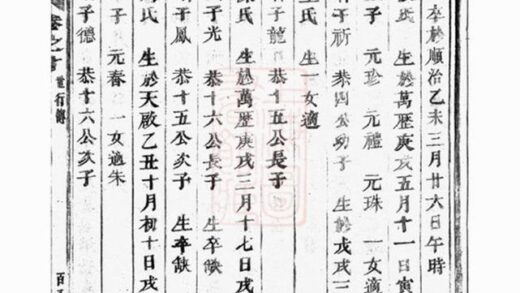 卒於順治乙未三月廿六日午時
氏 生於萬歷庚戌五月十一日寅
子 元珍 元禮 元珠 一女適
子祈 恭四公幼子 生於戊戌三
王氏 生一女適
子龍 恭十五公長子
氏 生於萬歷庚戌三月十七日戌
子光 恭十六公長子 生卒缺
子鳳 恭十五公次子 生卒缺
馬氏 生於天啟乙丑十月初十日戌
子 元春 一女適朱
子德 恭十六公次子
卷之 重行傳
百